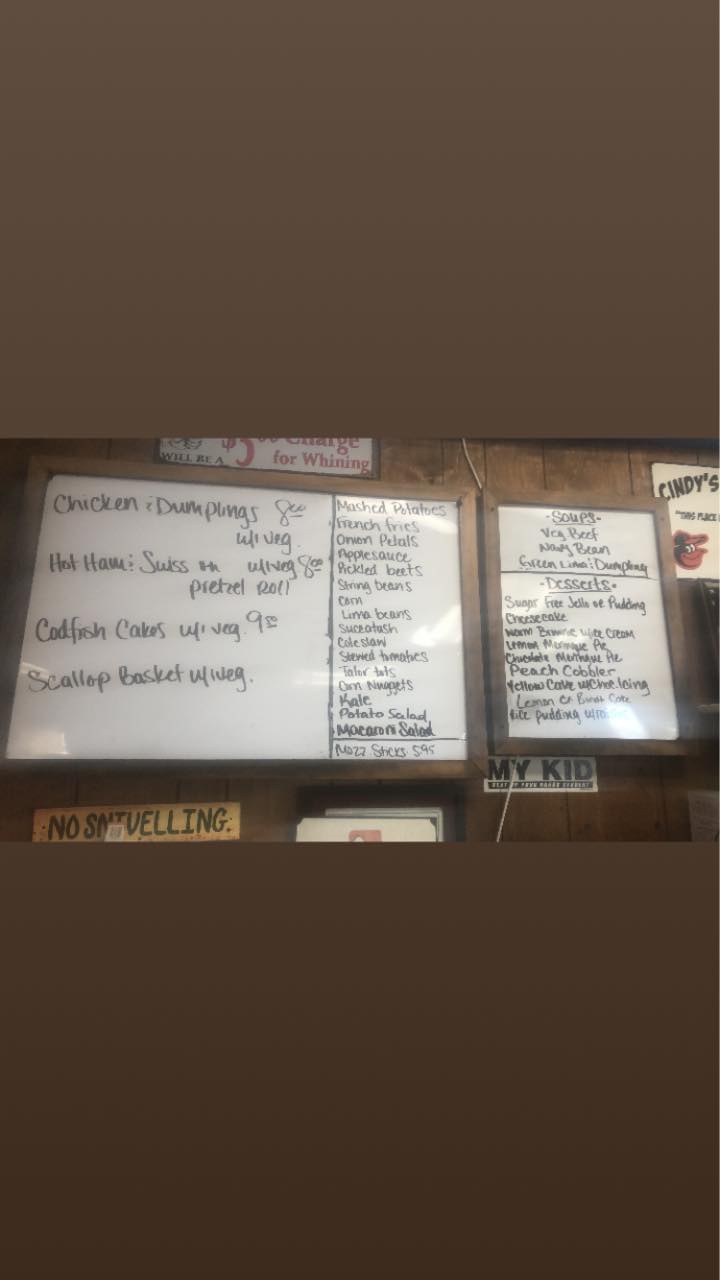 $5 Charge
WILL BE A for Whining
Chicken & Dumplings 8.00
w/1 veg.
Hot Ham & Swiss on w/1 veg 8.00
pretzel Roll
Codfish Cakes w/1 veg. 9.50
Scallop Basket w/1 veg.
Mashed Potatoes
French fries
Onion Petals
Applesauce
Pickled beets
String beans
Corn
Lima beans
Succatash
Coleslaw
Stewed tomatoes
Tator tots
Corn Nuggets
Kale
Potato Salad
Macaroni Salad
Mozz Sticks 5.95
-Soups-
Veg Beef
Navy Bean
Green Lima & Dumpling
-Desserts-
Sugar Free Jello or Pudding
Cheesecake
Warm Brownie w/Ice Cream
Lemon Meringue Pie
Chocolate Meringue Pie
Peach Cobbler
Yellow Cake w/Choc. Icing
Lemon
Rice pudding
CINDY'S
"THIS PLACE
MY KID
NO SNIVELLING.